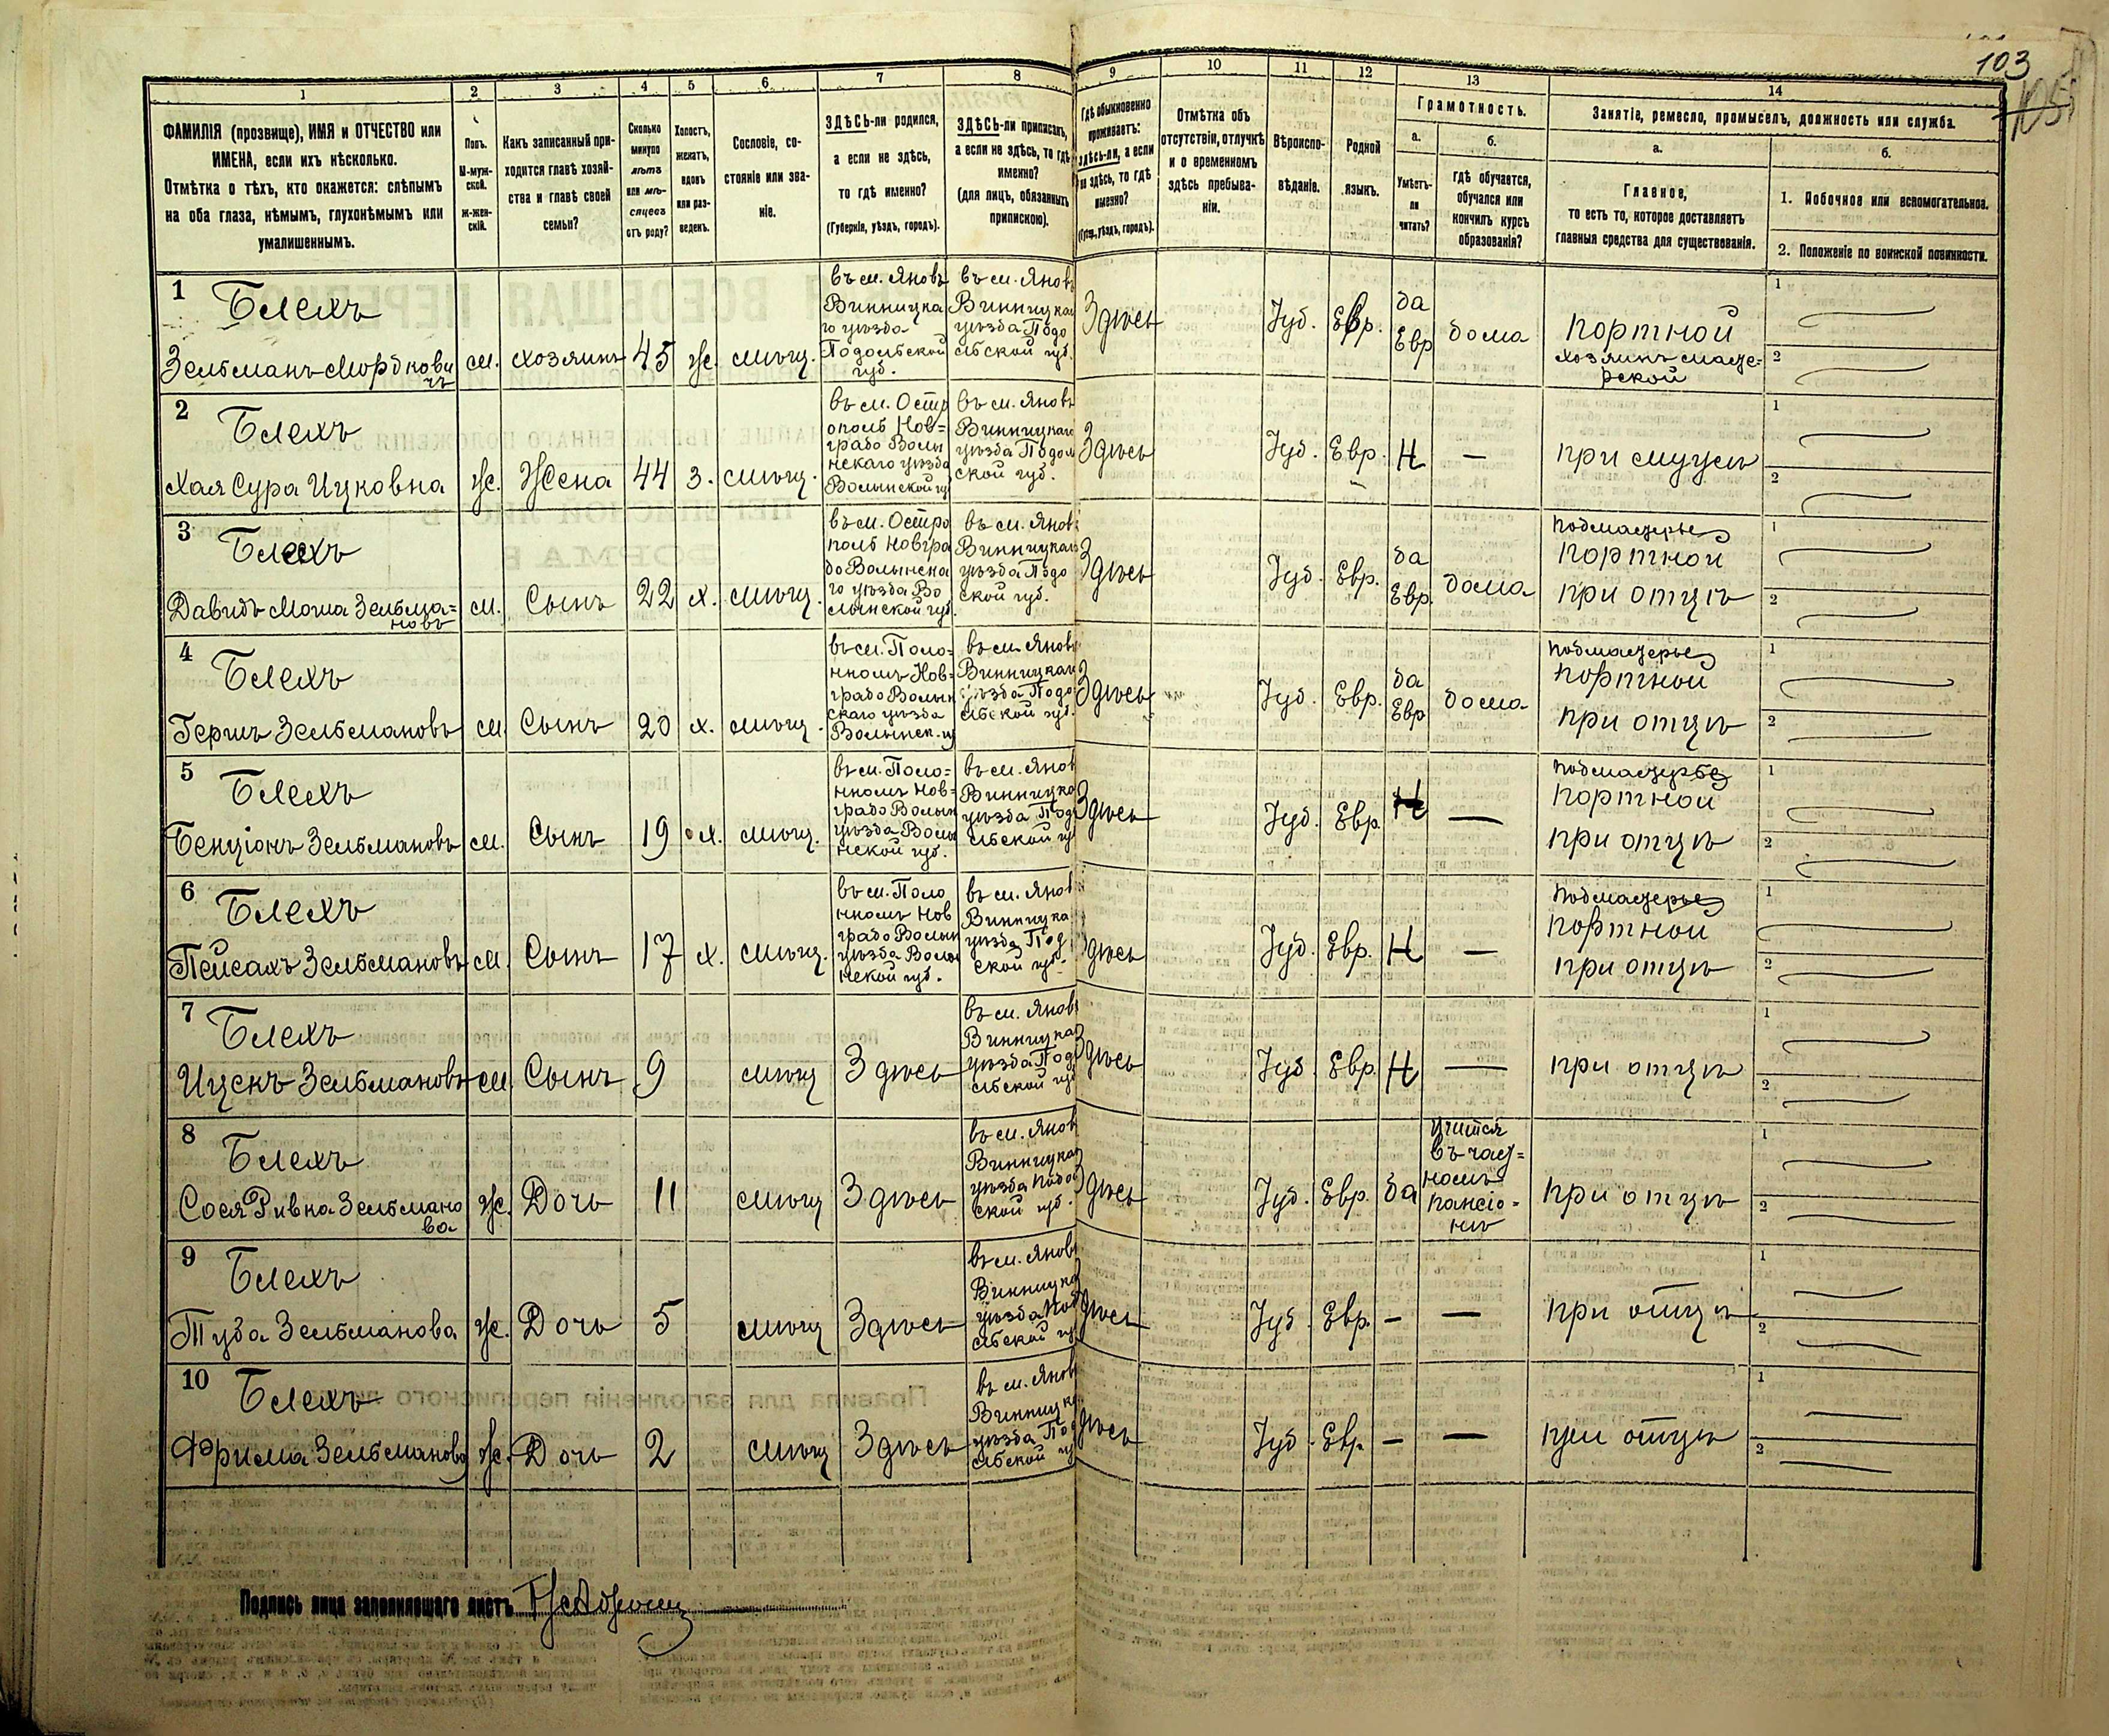 103
105
1
2
3
4
5
6
7
8
9
10
11
12
13
14
ФАМИЛІЯ (прозвище), ИМЯ и ОТЧЕСТВО или
ИМЕНА, если ихъ нѣсколько.
Отмѣтка о тѣхъ, кто окажется: слѣпымъ
на оба глаза, нѣмымъ, глухонѣмымъ или
умалишеннымъ.
Полъ.
М-муж-
ской.
Ж-жен-
скій.
Какъ записанный при-
ходится главѣ хозяй-
ства и главѣ своей
семьи?
Сколько
минуло
лѣтъ
или мѣ-
сяцевъ
отъ роду?
Холостъ,
женатъ,
вдовъ
или раз-
веденъ.
Сословіе, со-
стояніе или зва-
ніе.
ЗДѢСЬ-ли родился,
а если не здѣсь,
то гдѣ именно?
(Губернія, уѣздъ, городъ).
ЗДѢСЬ-ли приписанъ,
а если не здѣсь, то гдѣ
именно?
(для лицъ, обязанныхъ
припискою).
Гдѣ обыкновенно
проживаетъ:
здѣсь-ли, а если
не здѣсь, то гдѣ
именно?
(Губ., уѣздъ, городъ).
Отмѣтка объ
отсутствіи, отлучкѣ
и о временномъ
здѣсь пребыва-
ніи.
Вѣроиспо-
вѣданіе.
Родной
языкъ.
Грамотность.
а.
Умѣетъ-
ли
читать?
б.
гдѣ обучается,
обучался или
кончилъ курсъ
образованія?
Занятіе, ремесло, промыселъ, должность или служба.
а.
Главное,
то есть то, которое доставляетъ
главныя средства для существованія.
б.
1. Побочное или вспомогательное.
2. Положеніе по воинской повинности.
1
Блехъ
Зельманъ Мордкови
чъ
м.
хозяинъ
45
ж.
мѣщ.
въ м. Яновѣ
Винницка
го уѣзда
Подольской
губ.
въ м. Яновѣ
Винницкаг
уѣзда Подо
льской губ.
Здѣсь
Іуд.
Евр.
да
Евр
дома
портной
хозяинъ масте-
рской
1
2
2
Блехъ
Хая Сура Ицковна
ж.
Жена
44
з.
мѣщ.
въ м. Остр
ополь Нов=
градо Волы
нскаго уѣзда
Волынской гу
въ м. Яновѣ
Винницкаг
уѣзда Подол
ской губ.
Здѣсь
Іуд.
Евр.
Н
—
при мужѣ
1
2
3
Блехъ
Давидъ Моша Зельма=
новъ
м.
Сынъ
22
х.
мѣщ.
въ м. Остро
поль Новгра
до Волынска
го уѣзда Во
лынской губ.
въ м. Янов
Винницкаг
уѣзда Подо
ской губ.
Здѣсь
Іуд.
Евр.
да
Евр.
дома
подмастерье
портной
при отцѣ
1
2
4
Блехъ
Гершъ Зельмановъ
м
Сынъ
20
х.
мѣщ.
въ м. Поло=
нномъ Нов=
градо Волын
скаго уѣзда
Волынск. гу
въ м. Яновѣ
Винницкаг
уѣзда Подо
льской губ.
Здѣсь
Іуд.
Евр.
да
Евр
дома
подмастерье
портной
при отцѣ
1
2
5
Блехъ
Бенціонъ Зельмановъ
м.
Сынъ
19
х.
мѣщ.
въ м. Поло=
нномъ Нов=
градо Волын
уѣзда Волы
нской губ.
въ м. Янов
Винницка
уѣзда Под
льской гу
Здѣсь
Іуд.
Евр.
Н
—
подмастерье
портной
при отцѣ
1
2
6
Блехъ
Пейсахъ Зельмановъ
м.
Сынъ
17
х.
мѣщ.
въ м. Поло
нномъ Нов
градо Волын
уѣзда Волы
нской губ.
въ м. Янов
Винницка
уѣзда Под
ской губ.
Здѣсь
Іуд.
Евр.
Н
—
подмастерье
портной
при отцѣ
1
2
7
Блехъ
Ицекъ Зельмановъ
м
Сынъ
9
мѣщ
Здѣсь
въ м. Янов
Винницка
уѣзда Под
льской гу
Здѣсь
Іуд.
Евр.
Н
—
при отцѣ
1
2
8
Блехъ
Сося Ривка Зельмано
ва
ж.
Дочь
11
мѣщ
Здѣсь
въ м. Янов
Винницкаг
уѣзда Подо
ской губ.
Здѣсь
Іуд.
Евр.
да
учится
въ част=
номъ
пансіо-
нѣ
при отцѣ
1
2
9
Блехъ
Туба Зельманова
ж.
Дочь
5
мѣщ
Здѣсь
въ м. Янов
Винницка
уѣзда Под
льской гу
Здѣсь
Іуд.
Евр.
—
—
при отцѣ
1
2
10
Блехъ
Фрима Зельманова
ж.
Дочь
2
мѣщ
Здѣсь
въ м. Янов
Винницка
уѣзда Под
льской гу
Здѣсь
Іуд.
Евр.
—
—
при отцѣ
1
2
Подпись лица заполнившаго листъ